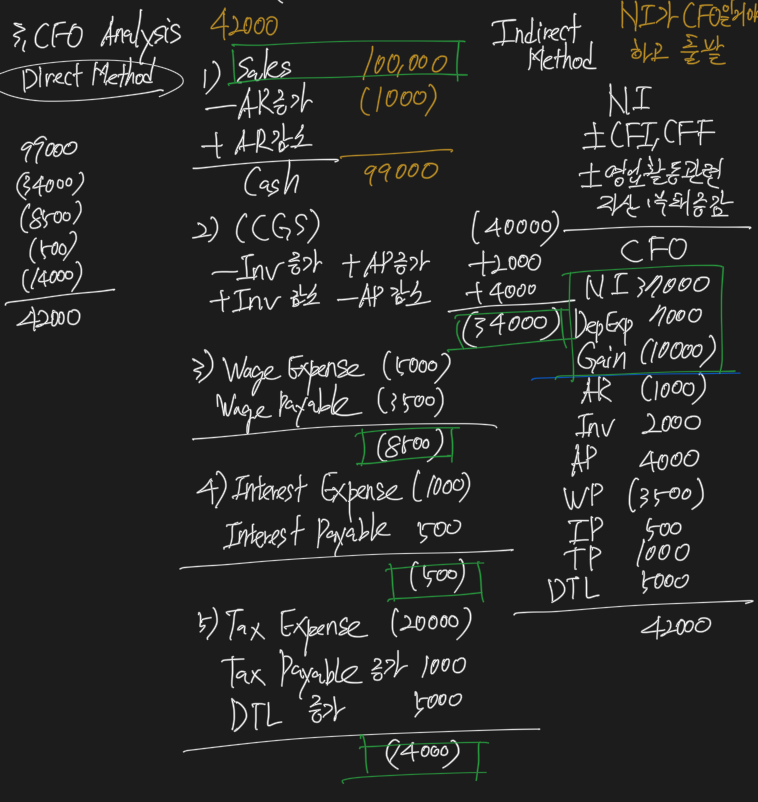 3, CFO Analysis
Direct Method
99000
(34000)
(8500)
(500)
(14000)
42000
42000
1) Sales 100,000
- AR증가 (1000)
+ AR감소
Cash 99000
2) (CGS) (40000)
- Inv 증가 + AP증가 +2000
+ Inv 감소 - AP 감소 +4000
(34000)
3) Wage Expense (5000)
Wage Payable (3500)
(8500)
4) Interest Expense (1000)
Interest Payable 500
(500)
5) Tax Expense (20000)
Tax Payable 증가 1000
DTL 증가 5000
(14000)
Indirect
Method
NI가 CFO
하고 출발
NI
± CFI, CFF
± 영업활동관련
자산·부채증감
CFO
NI 37000
Dep Exp 7000
Gain (10000)
AR (1000)
Inv 2000
AP 4000
WP (3500)
IP 500
TP 1000
DTL 5000
42000